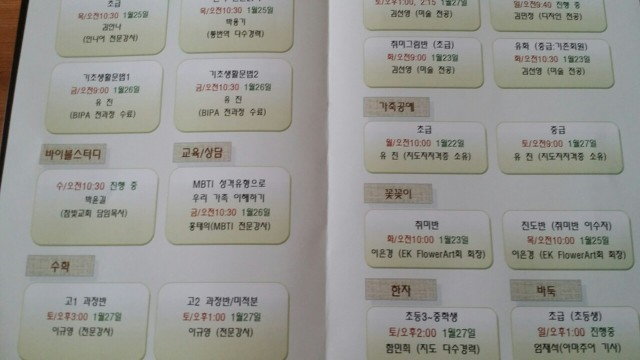 초급
목/오전10:30 1월25일
김안나
(원어이 전문강사)
목/오전10:30 1월25일
박용기
(통번역 다수경력)
기초생활문법1
금/오전9:00 1월26일
유 진
(BIPA 전과정 수료)
기초생활문법2
금/오전10:30 1월26일
유 진
(BIPA 전과정 수료)
바이블스터디
수/오전10:30 진행 중
백윤길
(참빛교회 담임목사)
교육/상담
MBTI 성격유형으로
우리 가족 이해하기
금/오전10:30 1월26일
홍재의(MBTI 전문강사)
수학
고1 과정반
토/오후3:00 1월27일
이규영 (전문강사)
고2 과정반/미적분
토/오후1:00 1월27일
이규영 (전문강사)
1월27일
김선영 (미술 전공)
일/오전9:40 진행 중
김인정 (디자인 전공)
취미그림반 (초급)
화/오전9:00 1월23일
김선영 (미술 전공)
유화 (중급:기존회원)
화/오전10:30 1월23일
김선영 (미술 전공)
가죽공예
초급
월/오전10:00 1월22일
유 진 (지도자자격증 소유)
중급
토/오전9:00 1월27일
유 진 (지도자자격증 소유)
꽃꽂이
취미반
화/오전10:00 1월23일
이은경 (EK FlowerArt회 회장)
진도반 (취미반 이수자)
목/오전10:00 1월25일
이은경 (EK FlowerArt회 회장)
한자
초등3~중학생
토/오후2:00 1월27일
함민희 (지도 다수경력)
바둑
초급 (초등생)
일/오후1:00 진행중
엄재석(아마추어 기사)